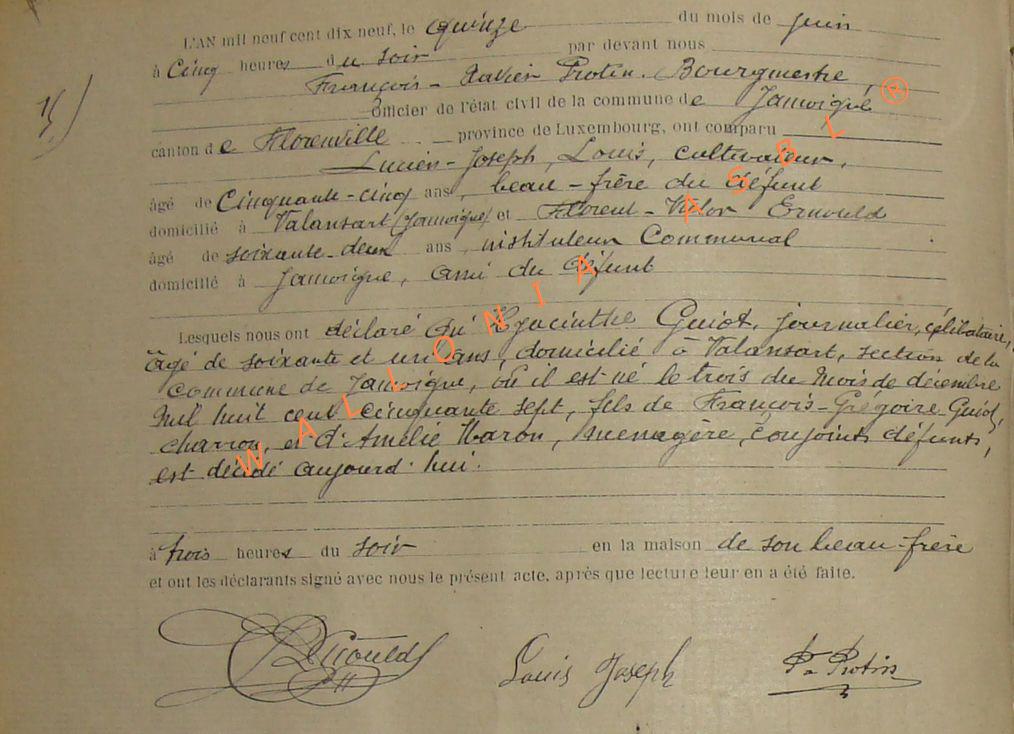 L'AN mil neuf cent dix neuf, le quinze du mois de juin
à Cinq heures du soir par devant nous
François-Xavier Protin. Bourgmestre,
Officier de l'état civil de la commune de Jamoigne
canton de Florenville province de Luxembourg, ont comparu
Lucien-Joseph, Louis, cultivateur,
âgé de Cinquante-cinq ans, beau-frère du défunt
domicilié à Valansart (Jamoigne) et Florent-Victor Ernould
âgé de soixante-deux ans, instituteur Communal
domicilié à Jamoigne, ami du défunt
Lesquels nous ont déclaré qu'Hyacinthe Guiot, journalier, célibataire,
âgé de soixante et un ans, domicilié à Valansart, section de la
commune de Jamoigne, où il est né le trois du mois de décembre
mil huit cent cinquante sept, fils de François-Grégoire Guiot,
charron, et d'Amélie Haron, ménagère, conjoints défunts,
est décédé aujourd'hui.
à trois heures du soir en la maison de son beau-frère
et ont les déclarants signé avec nous le présent acte, après que lecture leur en a été faite.
Ernould Louis Joseph Protin
WALLONIA ASBL ®